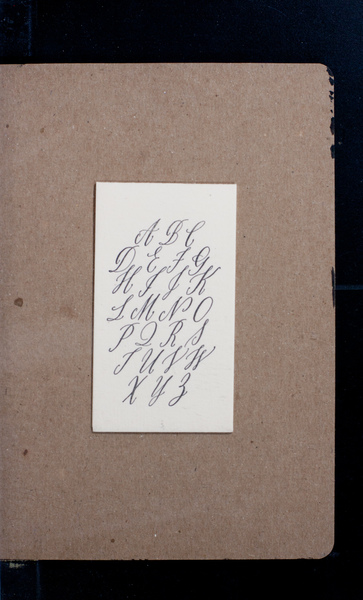 A B C
D E F G
H I J K
L M N O
P Q R S
T U V W
X Y Z